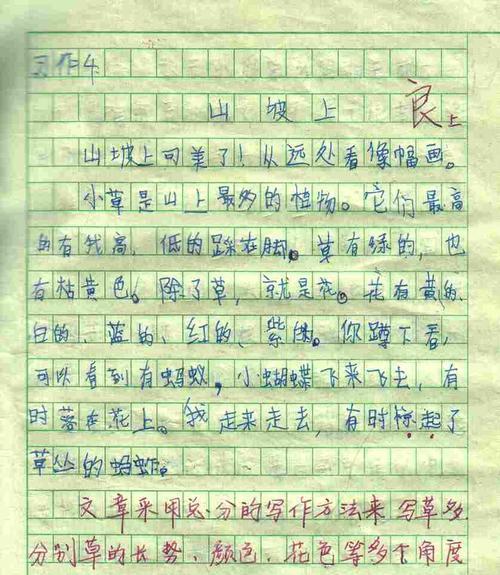 习作4
山坡上
良上
山坡上可美了！从远处看像幅画。
小草是山上最多的植物。它们最高
的有我高，低的踩在脚。草有绿的，也
有枯黄色。除了草，就是花。花有黄的、
白的、蓝的、红的、紫的。你蹲下看，
可以看到有蚂蚁，小蝴蝶飞来飞去，有
时落在花上。我走来走去，有时惊起了
草丛的蚂蚱。
文章采用总分的写作方法来写草多
分别草的长势、颜色、花色等多个角度